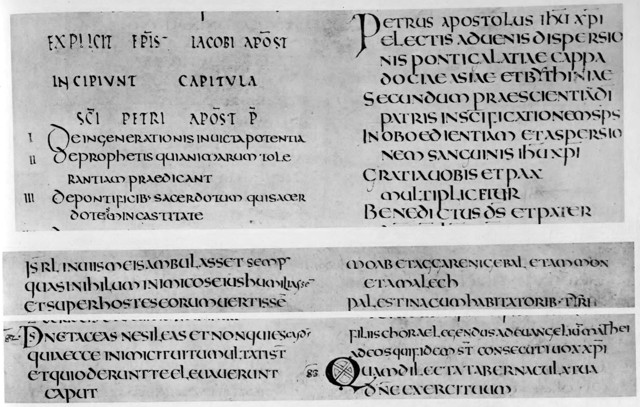 EXPLICIT EPIS IACOBI APOST
INCIPIUNT CAPITULA
SCI PETRI APOST P
I DEINGENERATIONIS INUICTAPOTENTIA
II DEPROPHETIS QUIANIMARUM TOLE
RANTIAM PRAEDICANT
III DEPONTIFICIB· SACERDOTUM QUISACER
DOTEM INCASTITATE
PETRUS APOSTOLUS IHU XPI
ELECTIS ADUENIS DISPERSIO
NIS PONTI GALATIAE CAPPA
DOCIAE ASIAE ETBYTHINIAE
SECUNDUM PRAESCIENTIADI
PATRIS INSCIFICATIONEM SPS
INOBOEDIENTIAM ETASPERSIO
NEM SANGUINIS IHU XPI
GRATIAUOBIS ETPAX
MULTIPLICETUR
BENEDICTUS DS ETPATER
ISRL INUIISMEISAMBULASSET SEMP
QUASINIHILUM INIMICOSEIUSHUMILIASSE
ETSUPERHOSTESEORUMUERTISSE
MOABETAGGARENI GEBAL ETAMMON
ETAMALECH
PALESTINACUMHABITATORIB· TYRI
82 DNETACEAS NESILEAS ETNONQUIESCAS DS
QUIAECCE INIMICITUITUMULTATI ST
ETQUIODERUNTTE ELEUAUERUNT
CAPUT
FILIISCHORAELEGENDUSADEUANGELIUM MATHEI
ADEOSQUIFIDEM ST CONSECUTIUOXXPI
83 QUAMDILECTATABERNACULATUA
DNE EXERCITUUM